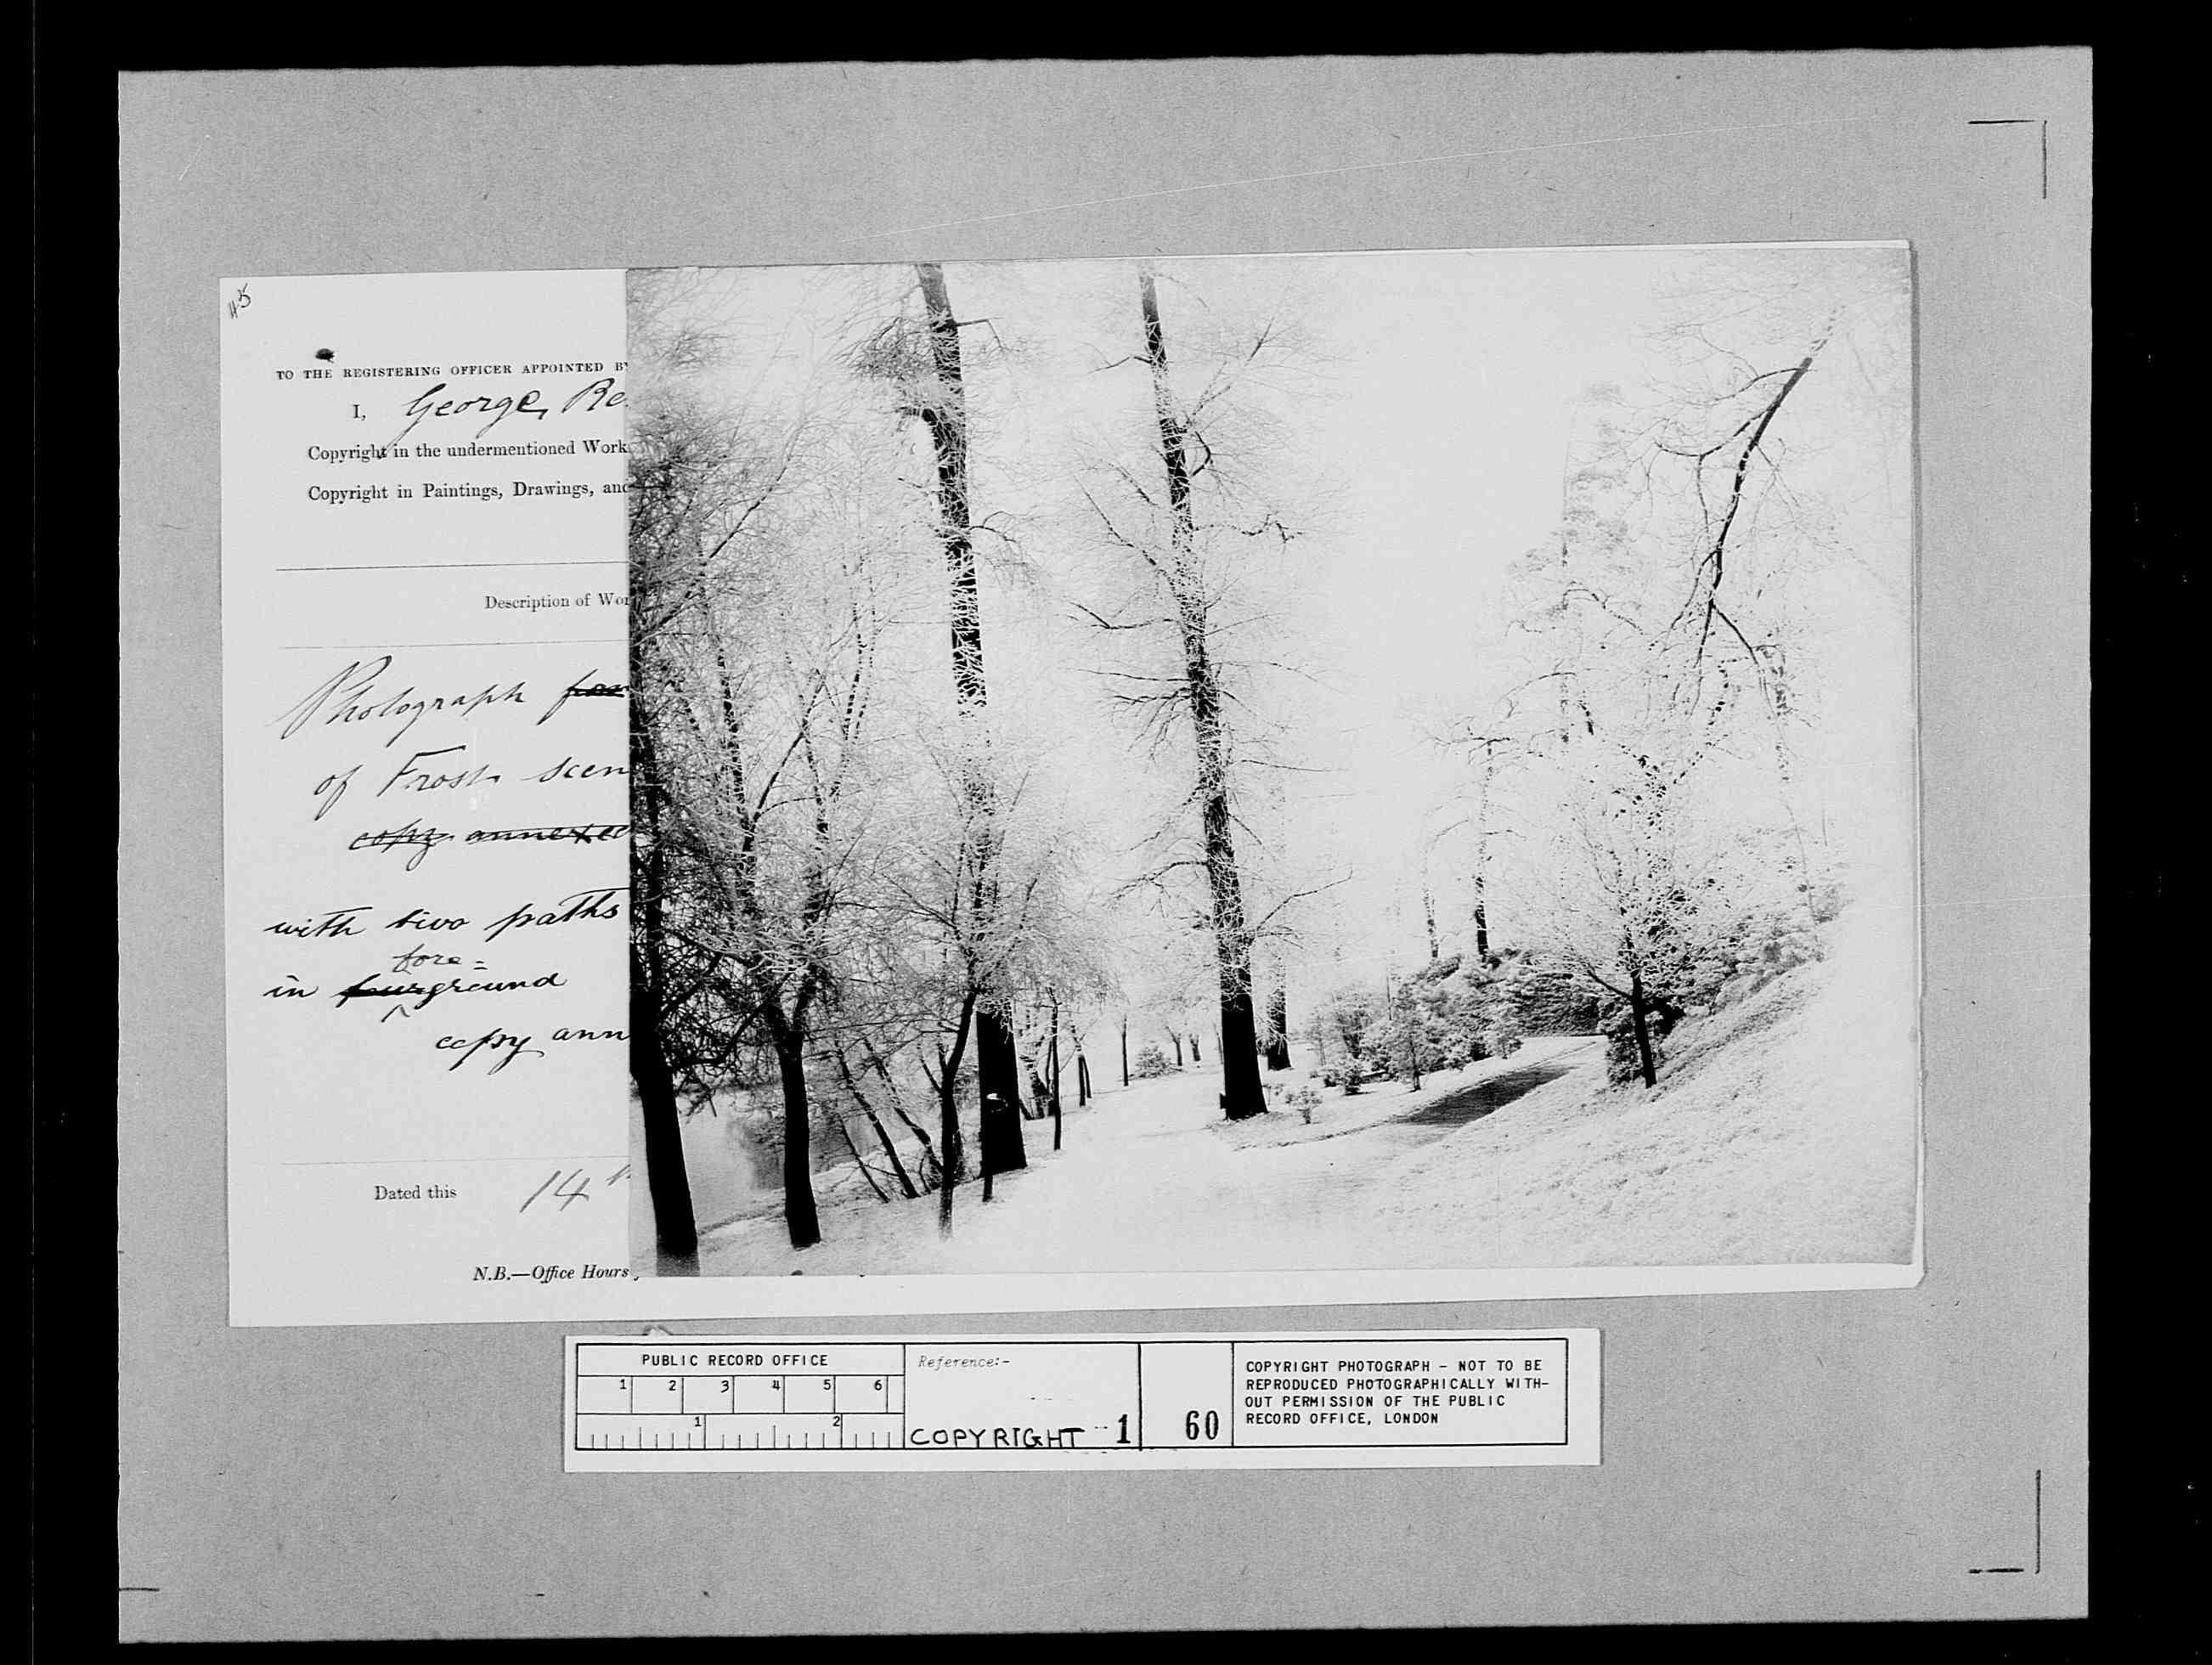 45
TO THE REGISTERING OFFICER APPOINTED BY
I, George, Re
Copyright in the undermentioned Work
Copyright in Paintings, Drawings, and
Description of Wor
Photograph
of Frost scen
copy annexed
with two paths
fore=
in ground
copy ann
Dated this 14th
N.B.—Office Hours
PUBLIC RECORD OFFICE
1 2 3 4 5 6
1 2
Reference:-
COPYRIGHT 1
60
COPYRIGHT PHOTOGRAPH - NOT TO BE
REPRODUCED PHOTOGRAPHICALLY WITH-
OUT PERMISSION OF THE PUBLIC
RECORD OFFICE, LONDON